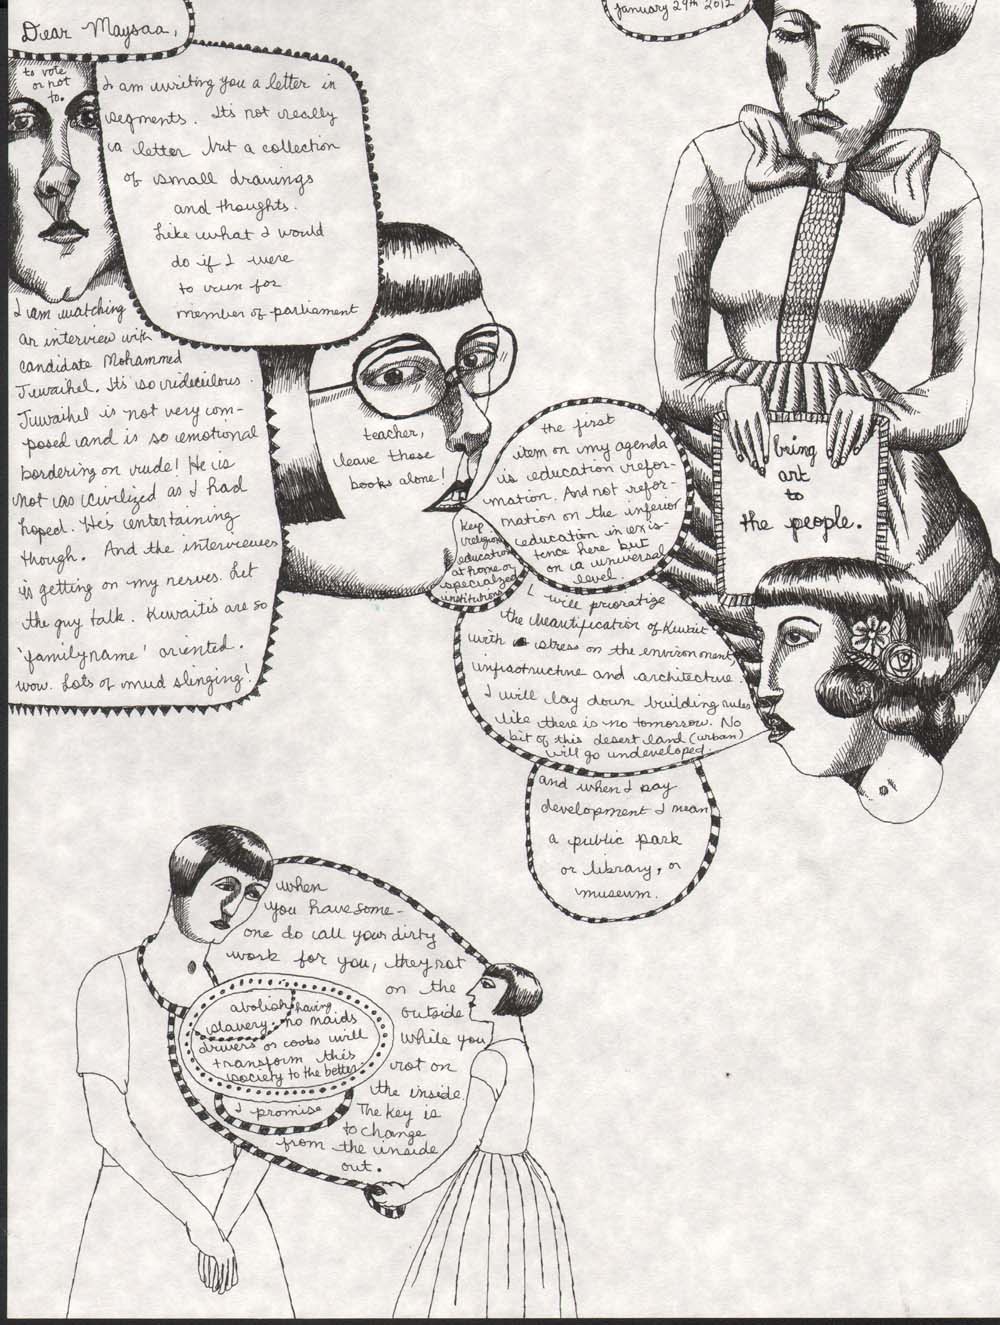 Dear Maysaa,
January 29th 2012
to vote
or not
to.
I am writing you a letter in
segments. It's not really
a letter but a collection
of small drawings
and thoughts.
Like what I would
do if I were
to run for
member of parliament
I am watching
an interview with
candidate Mohammed
Juwaihel. It's so ridiculous.
Juwaihel is not very com-
posed and is so emotional
bordering on rude! He is
not as civilized as I had
hoped. He's entertaining
though. And the interviewer
is getting on my nerves. Let
the guy talk. Kuwaitis are so
'family name' oriented.
wow. Lots of mud slinging!
teacher,
leave those
books alone!
the first
item on my agenda
is education refor-
mation. And not refor-
mation on the inferior
education in exis-
tence here but
on a universal
level.
keep
religious
education
at home or
specialized
institutions
bring
art
to
the people.
I will prioratize
the beautification of Kuwait
with stress on the environment,
infrastructure and architecture.
I will lay down building rules
like there is no tomorrow. No
bit of this desert land (urban)
will go undeveloped.
and when I say
development I mean
a public park
or library, or
museum.
when
you have some-
one do all your dirty
work for you, they rot
on the
outside
while you
rot on
the inside.
The key is
to change
from the inside
out.
abolish having
slavery. no maids
drivers or cooks will
transform this
society to the better.
I promise